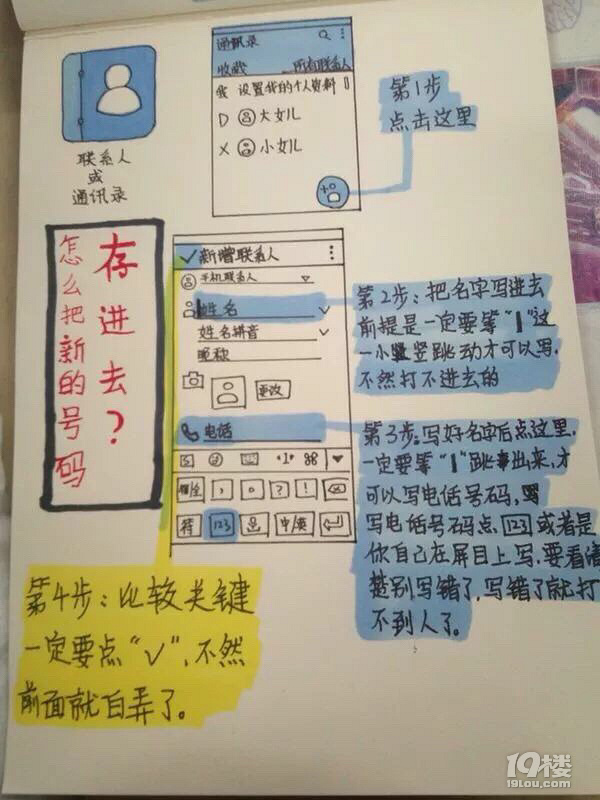 联系人
或
通讯录
通讯录
收藏 所有联系人
我 设置我的个人资料
D 大女儿
X 小女儿
第1步
点击这里
怎么把新的号码
存进去？
✓新增联系人
手机联系人
姓名
姓名拼音
昵称
更改
电话
， 。 ？ ！
符 123 中/英
第2步：把名字写进去
前提是一定要等“|”这
一小竖跳动才可以写，
不然打不进去的
第3步：写好名字后点这里，
一定要等“|”跳出来，才
可以写电话号码，
写电话号码点 123 或者是
你自己在屏目上写，要看清
楚别写错了，写错了就打
不到人了。
第4步：比较关键
一定要点“✓”，不然
前面就白弄了。
19楼
19lou.com